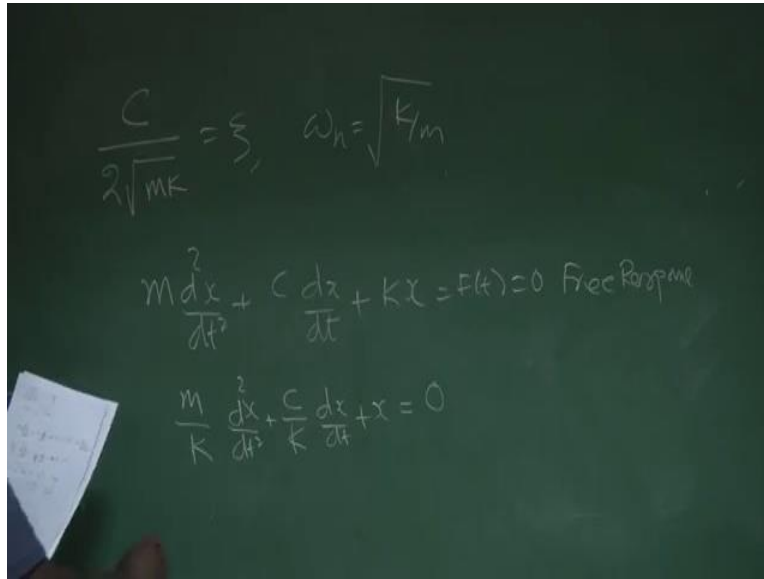 C/(2√mK) = ξ, ωn = √K/m
m d²x/dt² + C dx/dt + Kx = F(t) = 0 Free Response
m/K d²x/dt² + C/K dx/dt + x = 0